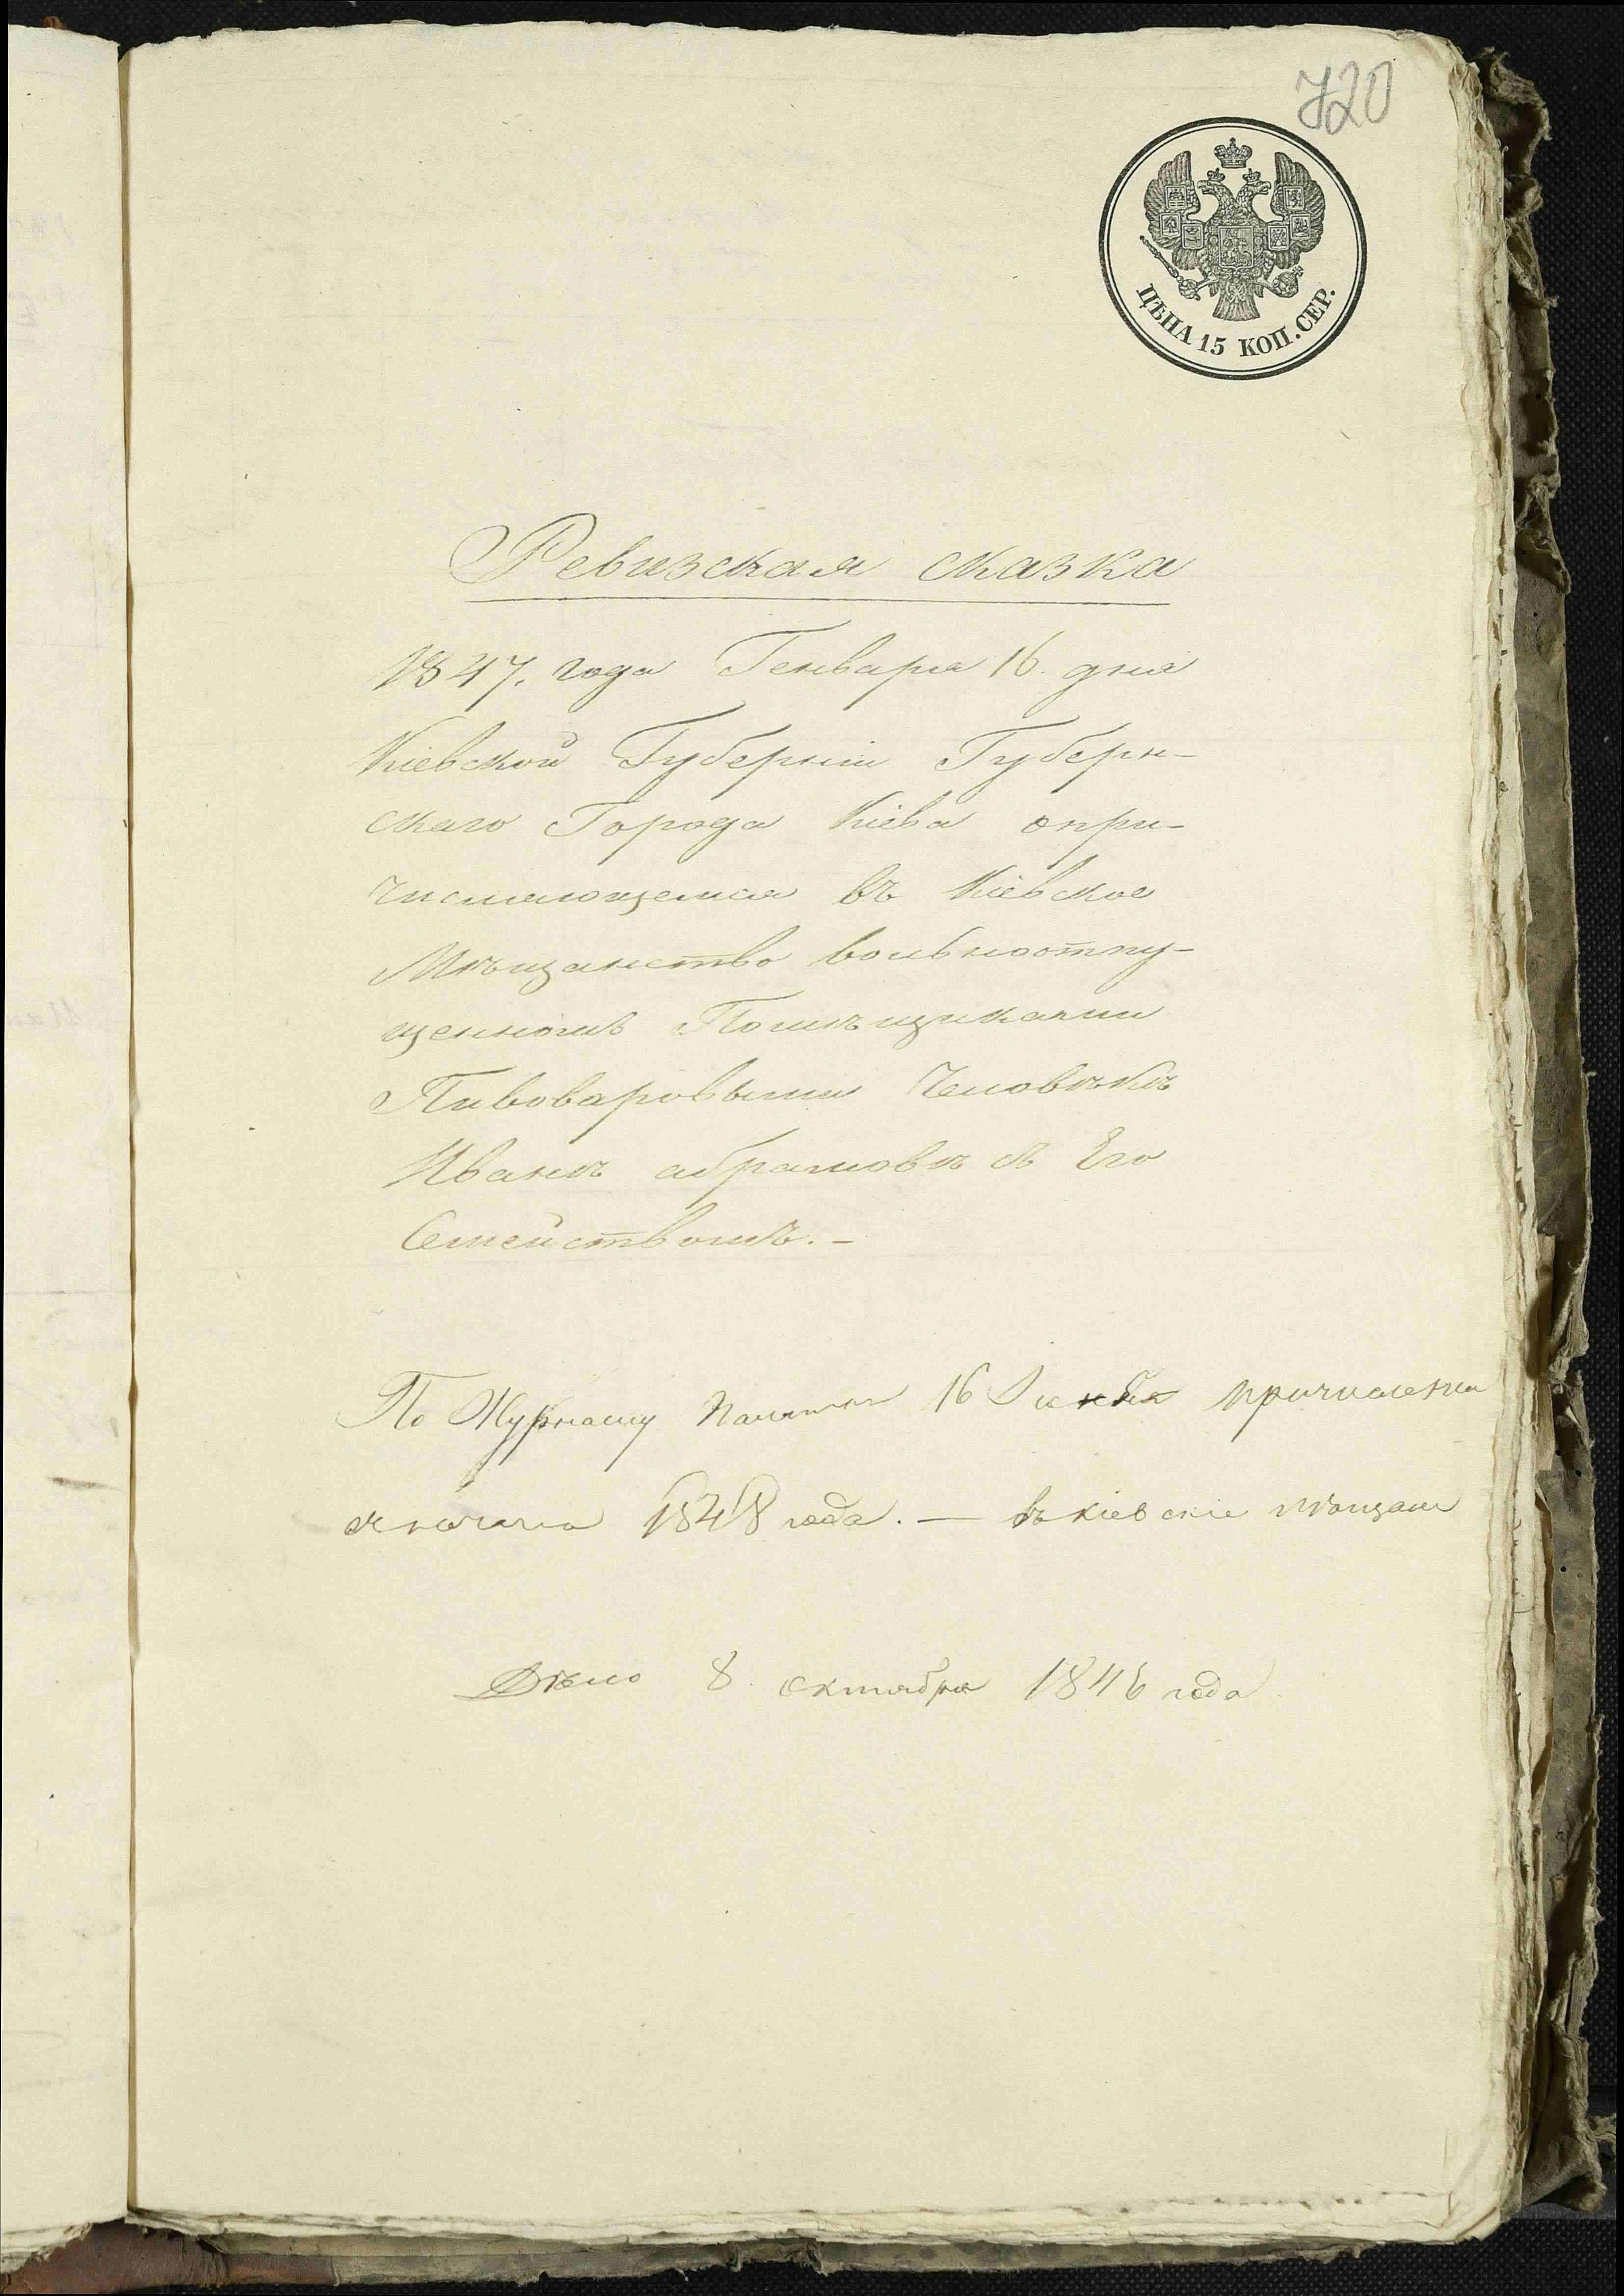 720
ЦѢНА 15 КОП. СЕР.
Ревизская сказка
1847. года Генваря 16. дня
Кіевской Губерніи Губерн-
скаго Города Кіева опри-
числяющемся въ Кіевское
Мѣщанство вольноотпу-
щенномъ Помѣщиками
Пивоваровыми Человѣкѣ
Иванѣ абрамовѣ съ Его
Семействомъ. -
По Журналу Палаты 16 причислены
съ начала 1848 года. — въ кіевскіе мѣщане
Дѣло 8 октября 1846 года